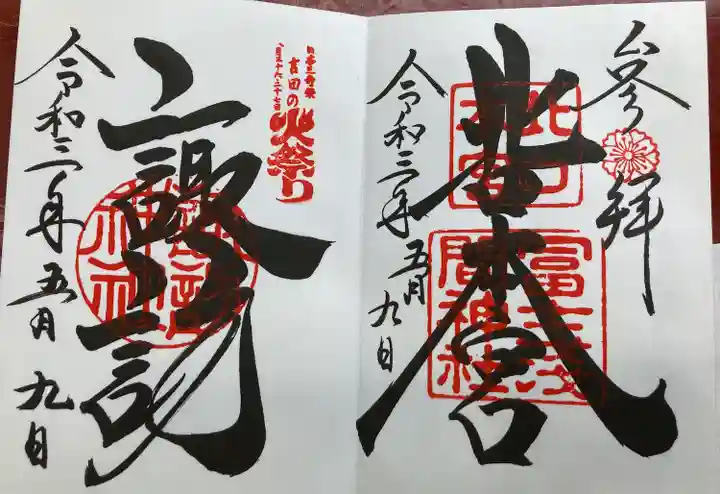 参拝
北口本宮
北口本宮
冨士浅間神社
令和三年五月九日
日本三奇祭
吉田の火祭り
諏訪神社
令和三年五月九日